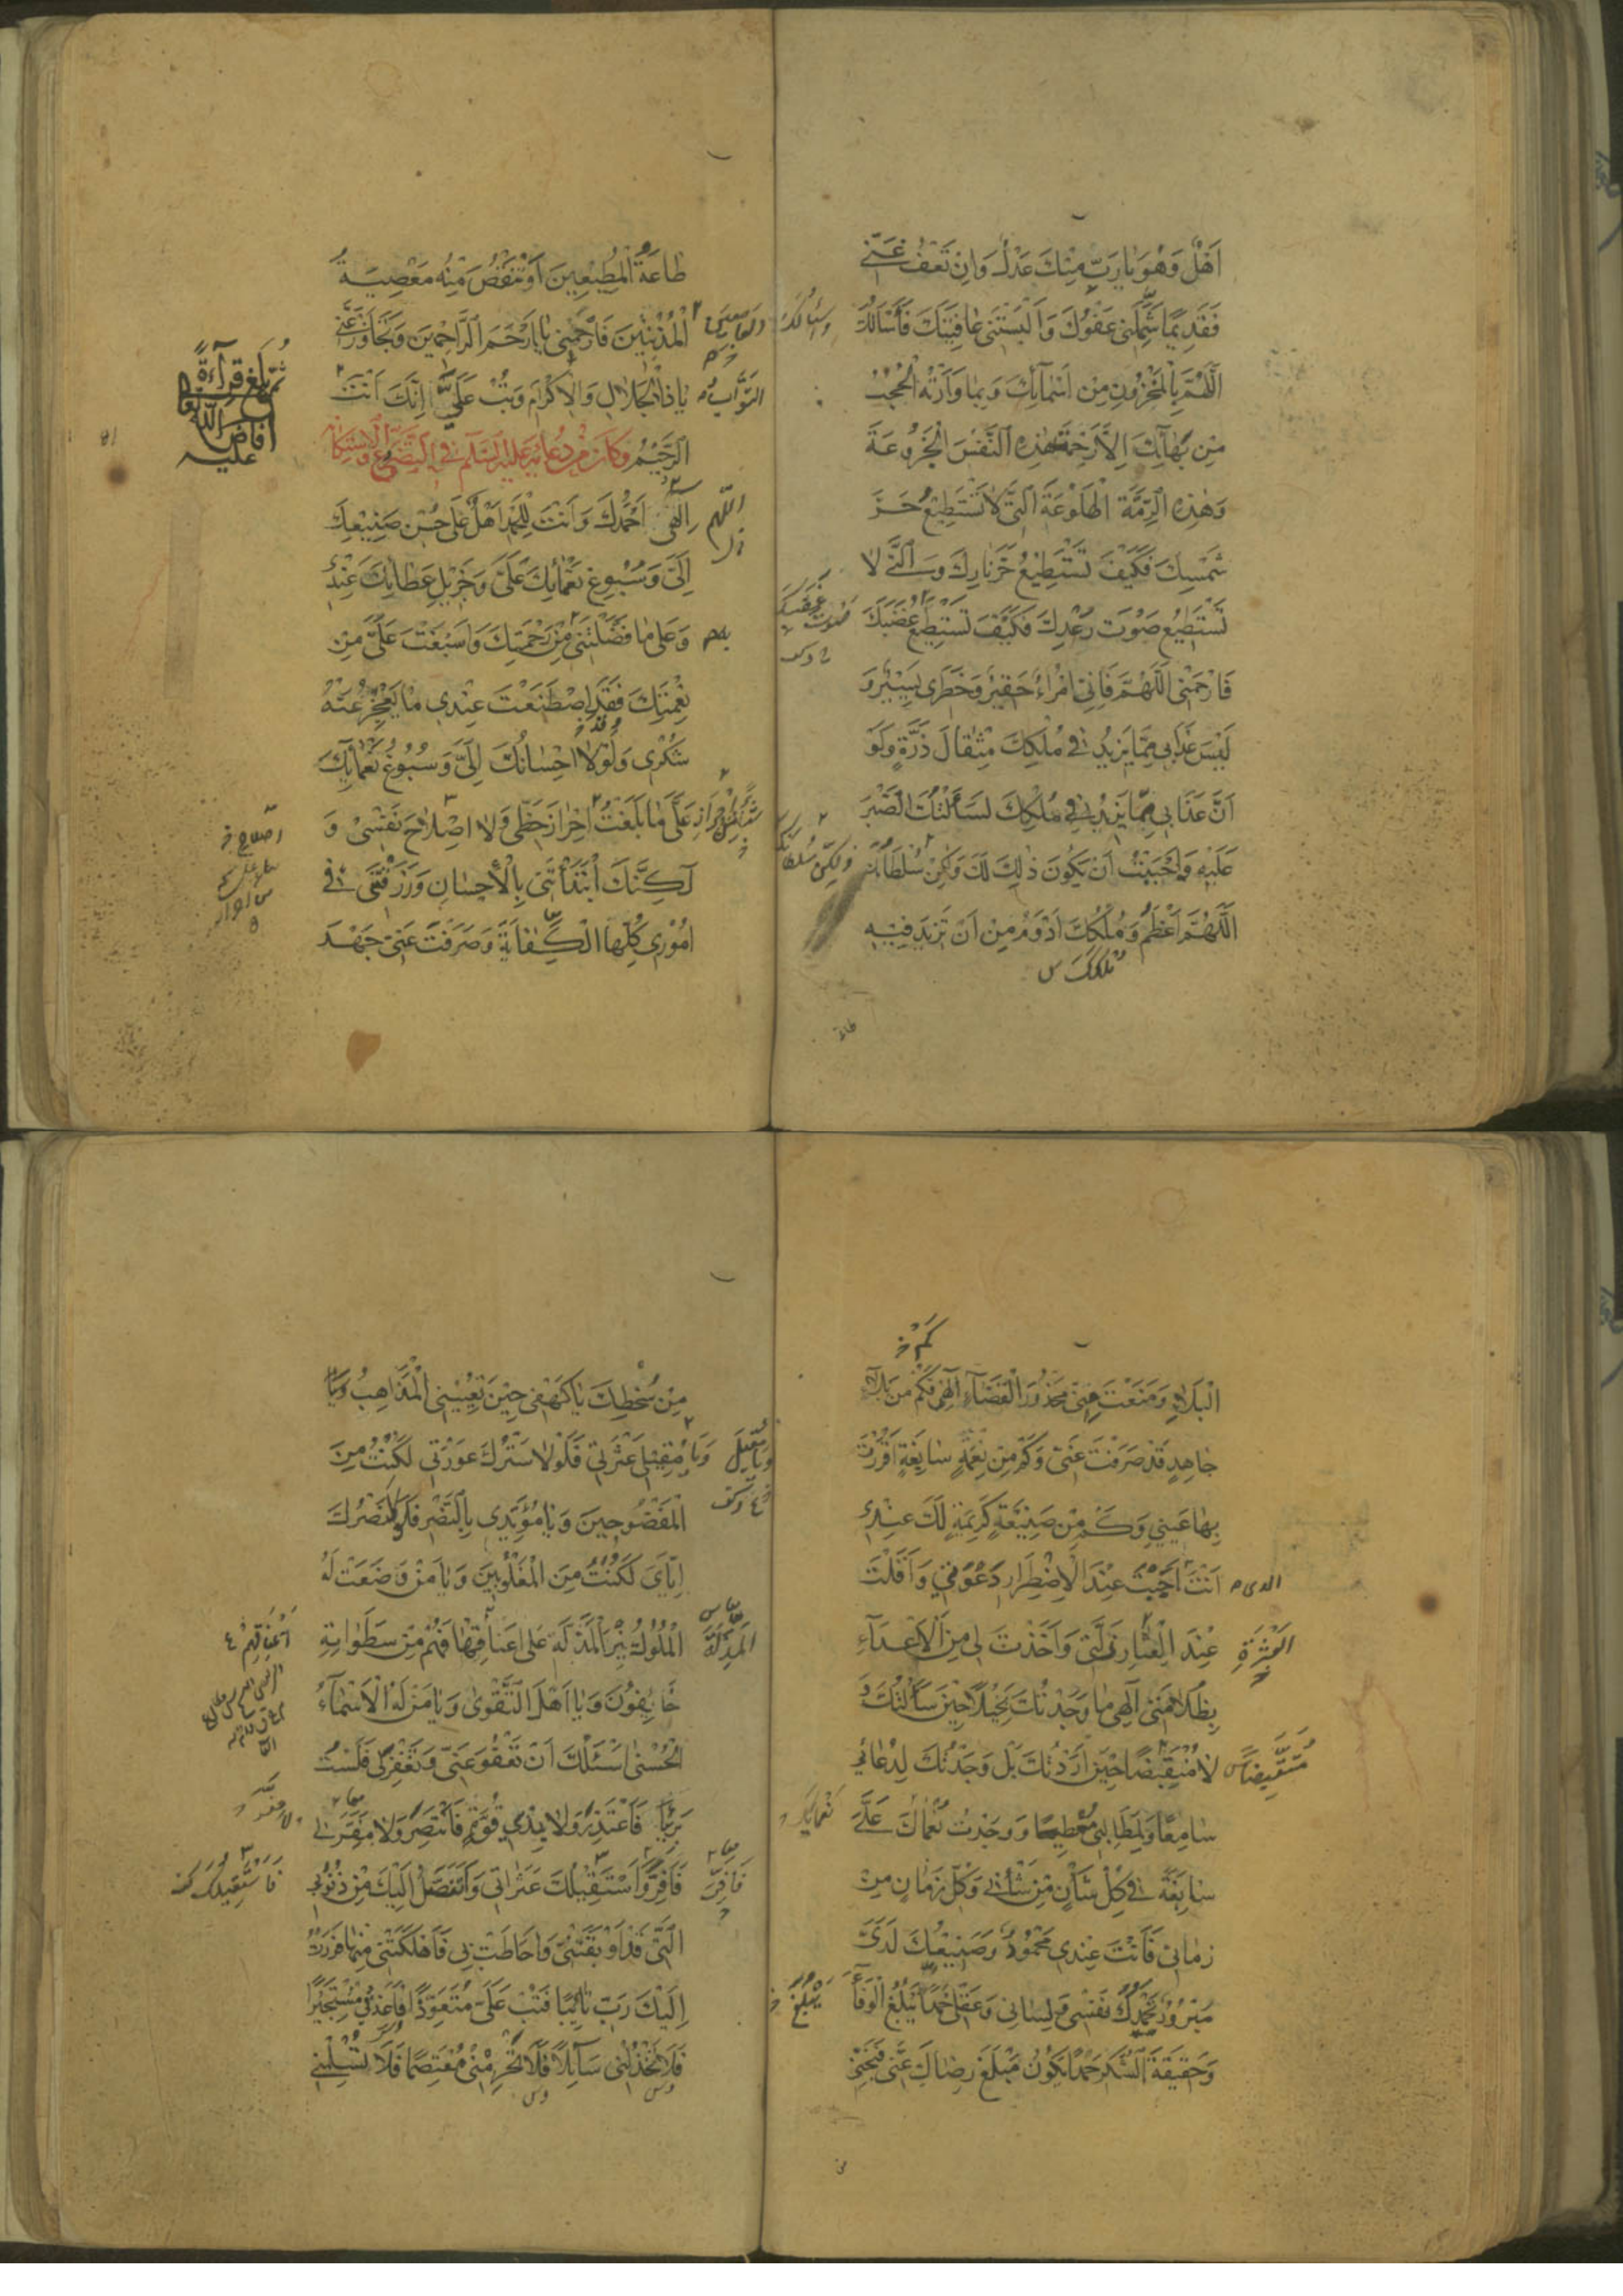 اَهْلٌ وَهُوَ يا رَبِّ مِنْكَ عَدْلٌ وَاِنْ تَعْفُ عَنّي
فَقَديمًا شَمَلَني عَفْوُكَ وَاَلْبَسْتَني عافِيَتَكَ فَاَسْاَلُكَ
وَاَسْئَالُكَ
اَللّهُمَّ بِالْمَخْزُونِ مِنْ اَسْمآئِكَ وَبِما وَارَتْهُ الْحُجُبُ
مِنْ بَهآئِكَ اِلّا رَحِمْتَ هٰذِهِ النَّفْسَ الْجَزُوعَةَ
وَهٰذِهِ الرِّمَّةَ الْهَلُوعَةَ الَّتي لا تَسْتَطيعُ حَرَّ
شَمْسِكَ فَكَيْفَ تَسْتَطيعُ حَرَّ نارِكَ وَالَّتي لا
تَسْتَطيعُ صَوْتَ رَعْدِكَ فَكَيْفَ تَسْتَطيعُ غَضَبَكَ
فَارْحَمْنِي اللّهُمَّ فَاِنِّي امْرُءٌ حَقيرٌ وَخَطَري يَسيرٌ وَ
لَيْسَ عَذابي مِمّا يَزيدُ في مُلْكِكَ مِثْقالَ ذَرَّةٍ وَلَوْ
اَنَّ عَذابي مِمّا يَزيدُ في مُلْكِكَ لَسَاَلْتُكَ الصَّبْرَ
عَلَيْهِ وَاَحْبَبْتُ اَنْ يَكُونَ ذٰلِكَ لَكَ وَلكِنْ سُلْطانُكَ
وَلكِنَّ سُلْطانَكَ
اَللّهُمَّ اَعْظَمُ وَمُلْكُكَ اَدْوَمُ مِنْ اَنْ تَزيدَ فيهِ
مُلْكَكَ س
طاعة
طاعَةُ الْمُطيعينَ اَوْ تَنْقُصَ مِنْهُ مَعْصِيَةُ
الْمُذْنِبينَ فَارْحَمْني يا اَرْحَمَ الرّاحِمينَ وَتَجاوَزْ عَنّي
يا ذَا الْجَلالِ وَالْاِكْرامِ وَتُبْ عَلَيَّ اِنَّكَ اَنْتَ
التَّوَّابُ
ثُمَّ بلغ قرآءةً
الرَّحيمُ وَكانَ مِنْ دُعائِهِ عَلَيْهِ السَّلَمُ فِي التَّضَرُّعِ وَالْاِسْتِكانَةِ
اِلٰهي اَحْمَدُكَ وَاَنْتَ لِلْحَمْدِ اَهْلٌ عَلى حُسْنِ صَنيعِكَ
اللّهمّ
اِلَيَّ وَسُبُوغِ نَعْمائِكَ عَلَيَّ وَجَزيلِ عَطائِكَ عِنْدي
وَعَلى ما فَضَّلْتَني مِنْ رَحْمَتِكَ وَاَسْبَغْتَ عَلَيَّ مِنْ
نِعْمَتِكَ فَقَدِ اصْطَنَعْتَ عِنْدي ما يَعْجِزُ عَنْهُ
شُكْري وَلَوْلا اِحْسانُكَ اِلَيَّ وَسُبُوغُ نَعْمآئِكَ
عَلَيَّ ما بَلَغْتُ اِحْرازَ حَظّي وَلا اِصْلاحَ نَفْسي وَ
لكِنَّكَ ابْتَدَأْتَني بِالْاِحْسانِ وَرَزَقْتَني في
اُمُوري كُلِّهَا الْكِفايَةَ وَصَرَفْتَ عَنّي جَهْدَ
كَمْ خ
الْبَلاءِ وَمَنَعْتَ مِنّي مَحْذُورَ الْقَضآءِ اِلٰهي فَكَمْ مِنْ بَلاءٍ
جاهِدٍ قَدْ صَرَفْتَ عَنّي وَكَمْ مِنْ نِعْمَةٍ سابِغَةٍ اَقْرَرْتَ
بِها عَيْني وَكَمْ مِنْ صَنيعَةٍ كَريمَةٍ لَكَ عِنْدي
اَنْتَ اَجَبْتَ عِنْدَ الْاِضْطِرارِ دَعْوَتي وَاَقَلْتَ
عِنْدَ الْعِثارِ زَلَّتي وَاَخَذْتَ لي مِنَ الْاَعْدآءِ
بِظُلامَتي اِلٰهي ما وَجَدْتُكَ بَخيلًا حينَ سَاَلْتُكَ وَ
لا مُنْقَبِضًا حينَ اَرَدْتُكَ بَلْ وَجَدْتُكَ لِدُعائي
سامِعًا وَلِمَطالِبي مُعْطِيًا وَوَجَدْتُ نُعْماكَ عَلَيَّ
نَعْمائِكَ
سابِغَةً في كُلِّ شَأْنٍ مِنْ شَأْني وَكُلِّ زَمانٍ مِنْ
زَماني فَاَنْتَ عِنْدي مَحْمُودٌ وَصَنيعُكَ لَدَيَّ
مَبْرُورٌ تَحْمَدُكَ نَفْسي وَلِساني وَعَقْلي حَمْدًا يَبْلُغُ الْوَفآءَ
وَحَقيقَةَ الشُّكْرِ حَمْدًا يَكُونُ مَبْلَغَ رِضاكَ عَنّي فَنَجِّني
مِنْ سُخْطِكَ يا كَهْفي حينَ تُعْييني الْمَذاهِبُ وَيا
مُقيلي عَثْرَتي فَلَوْلا سَتْرُكَ عَوْرَتي لَكُنْتُ مِنَ
الْمَفْضُوحينَ وَيا مُؤَيِّدي بِالنَّصْرِ فَلَوْلا نَصْرُكَ
اِيّايَ لَكُنْتُ مِنَ الْمَغْلُوبينَ وَيا مَنْ وَضَعَتْ لَهُ
الْمُلُوكُ نيرَ الْمَذَلَّةِ عَلى اَعْناقِها فَهُمْ مِنْ سَطَواتِهِ
اَعْناقِهِمْ
خائِفُونَ وَيا اَهْلَ التَّقْوى وَيا مَنْ لَهُ الْاَسْمآءُ
الْحُسْنى اَسْئَلُكَ اَنْ تَعْفُوَ عَنّي وَتَغْفِرَ لي فَلَسْتُ
بَريئًا فَاَعْتَذِرَ وَلا بِذي قُوَّةٍ فَاَنْتَصِرَ وَلا مَفَرَّ لي
فَاَفِرَّ وَاَسْتَقيلُكَ عَثَراتي وَاَتَنَصَّلُ اِلَيْكَ مِنْ ذُنُوبي
الَّتي قَدْ اَوْبَقَتْني وَاَحاطَتْ بي فَاَهْلَكَتْني مِنْها فَرَرْتُ
اِلَيْكَ رَبِّ تائِبًا فَتُبْ عَلَيَّ مُتَعَوِّذًا فَاَعِذْني مُسْتَجيرًا
فَلا تَخْذُلْني سآئِلًا فَلا تَحْرِمْني مُعْتَصِمًا فَلا تُسْلِمْني